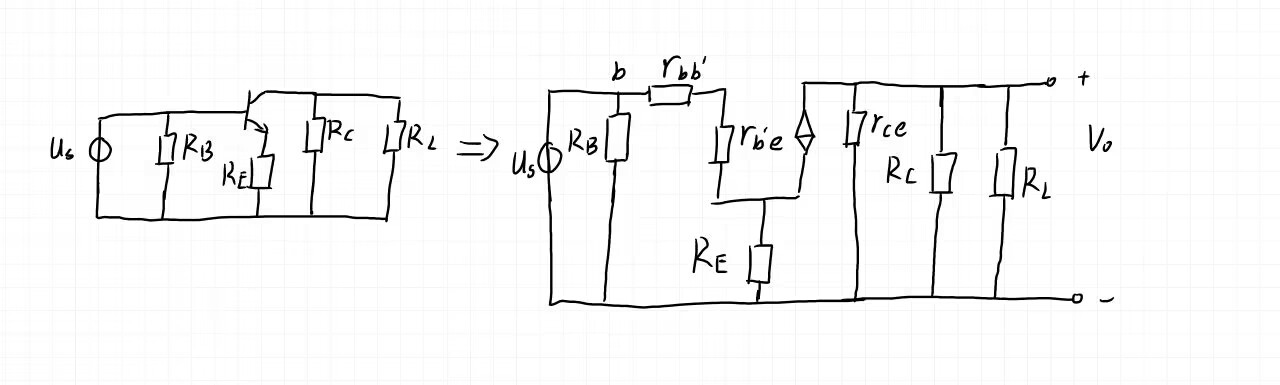 Us
RB
RE
RC
RL
⇒
Us
RB
b
rbb'
rb'e
RE
rce
RC
RL
+
Vo
−